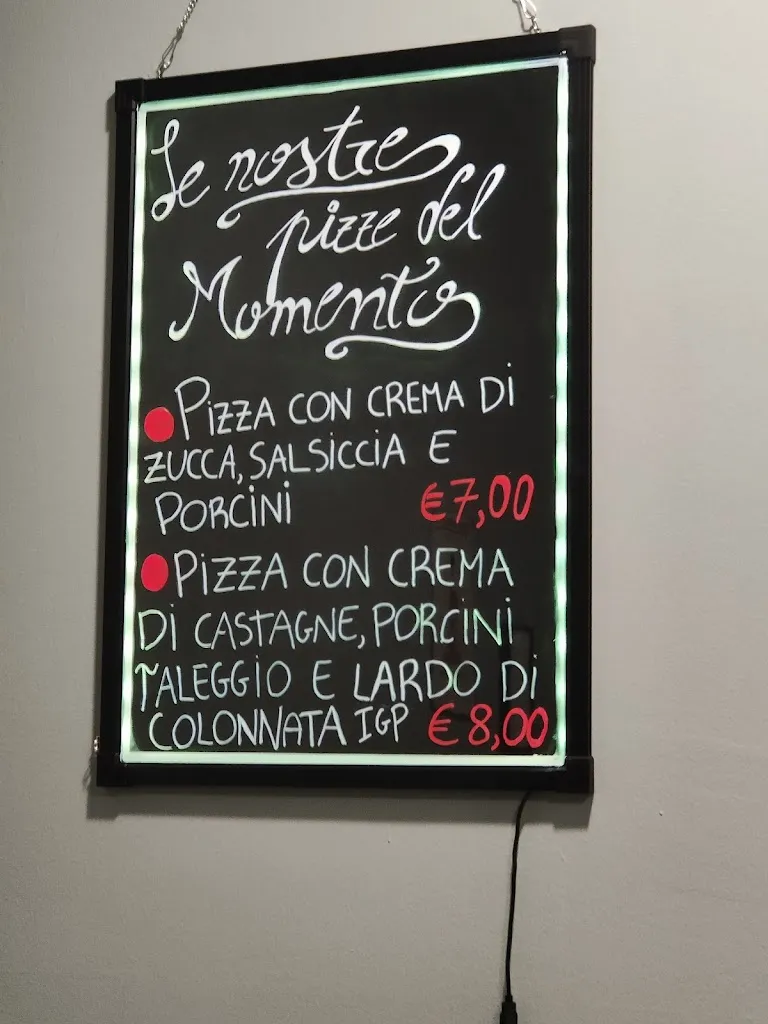 Le nostre
pizze del
Momento
PiZZA CON CREMA Di
ZUCCA, SALSiCCiA E
PORCiNi €7,00
PiZZA CON CREMA
Di CASTAGNE, PORCiNi
TALEGGiO E LARDO Di
COLONNATA IGP €8,00